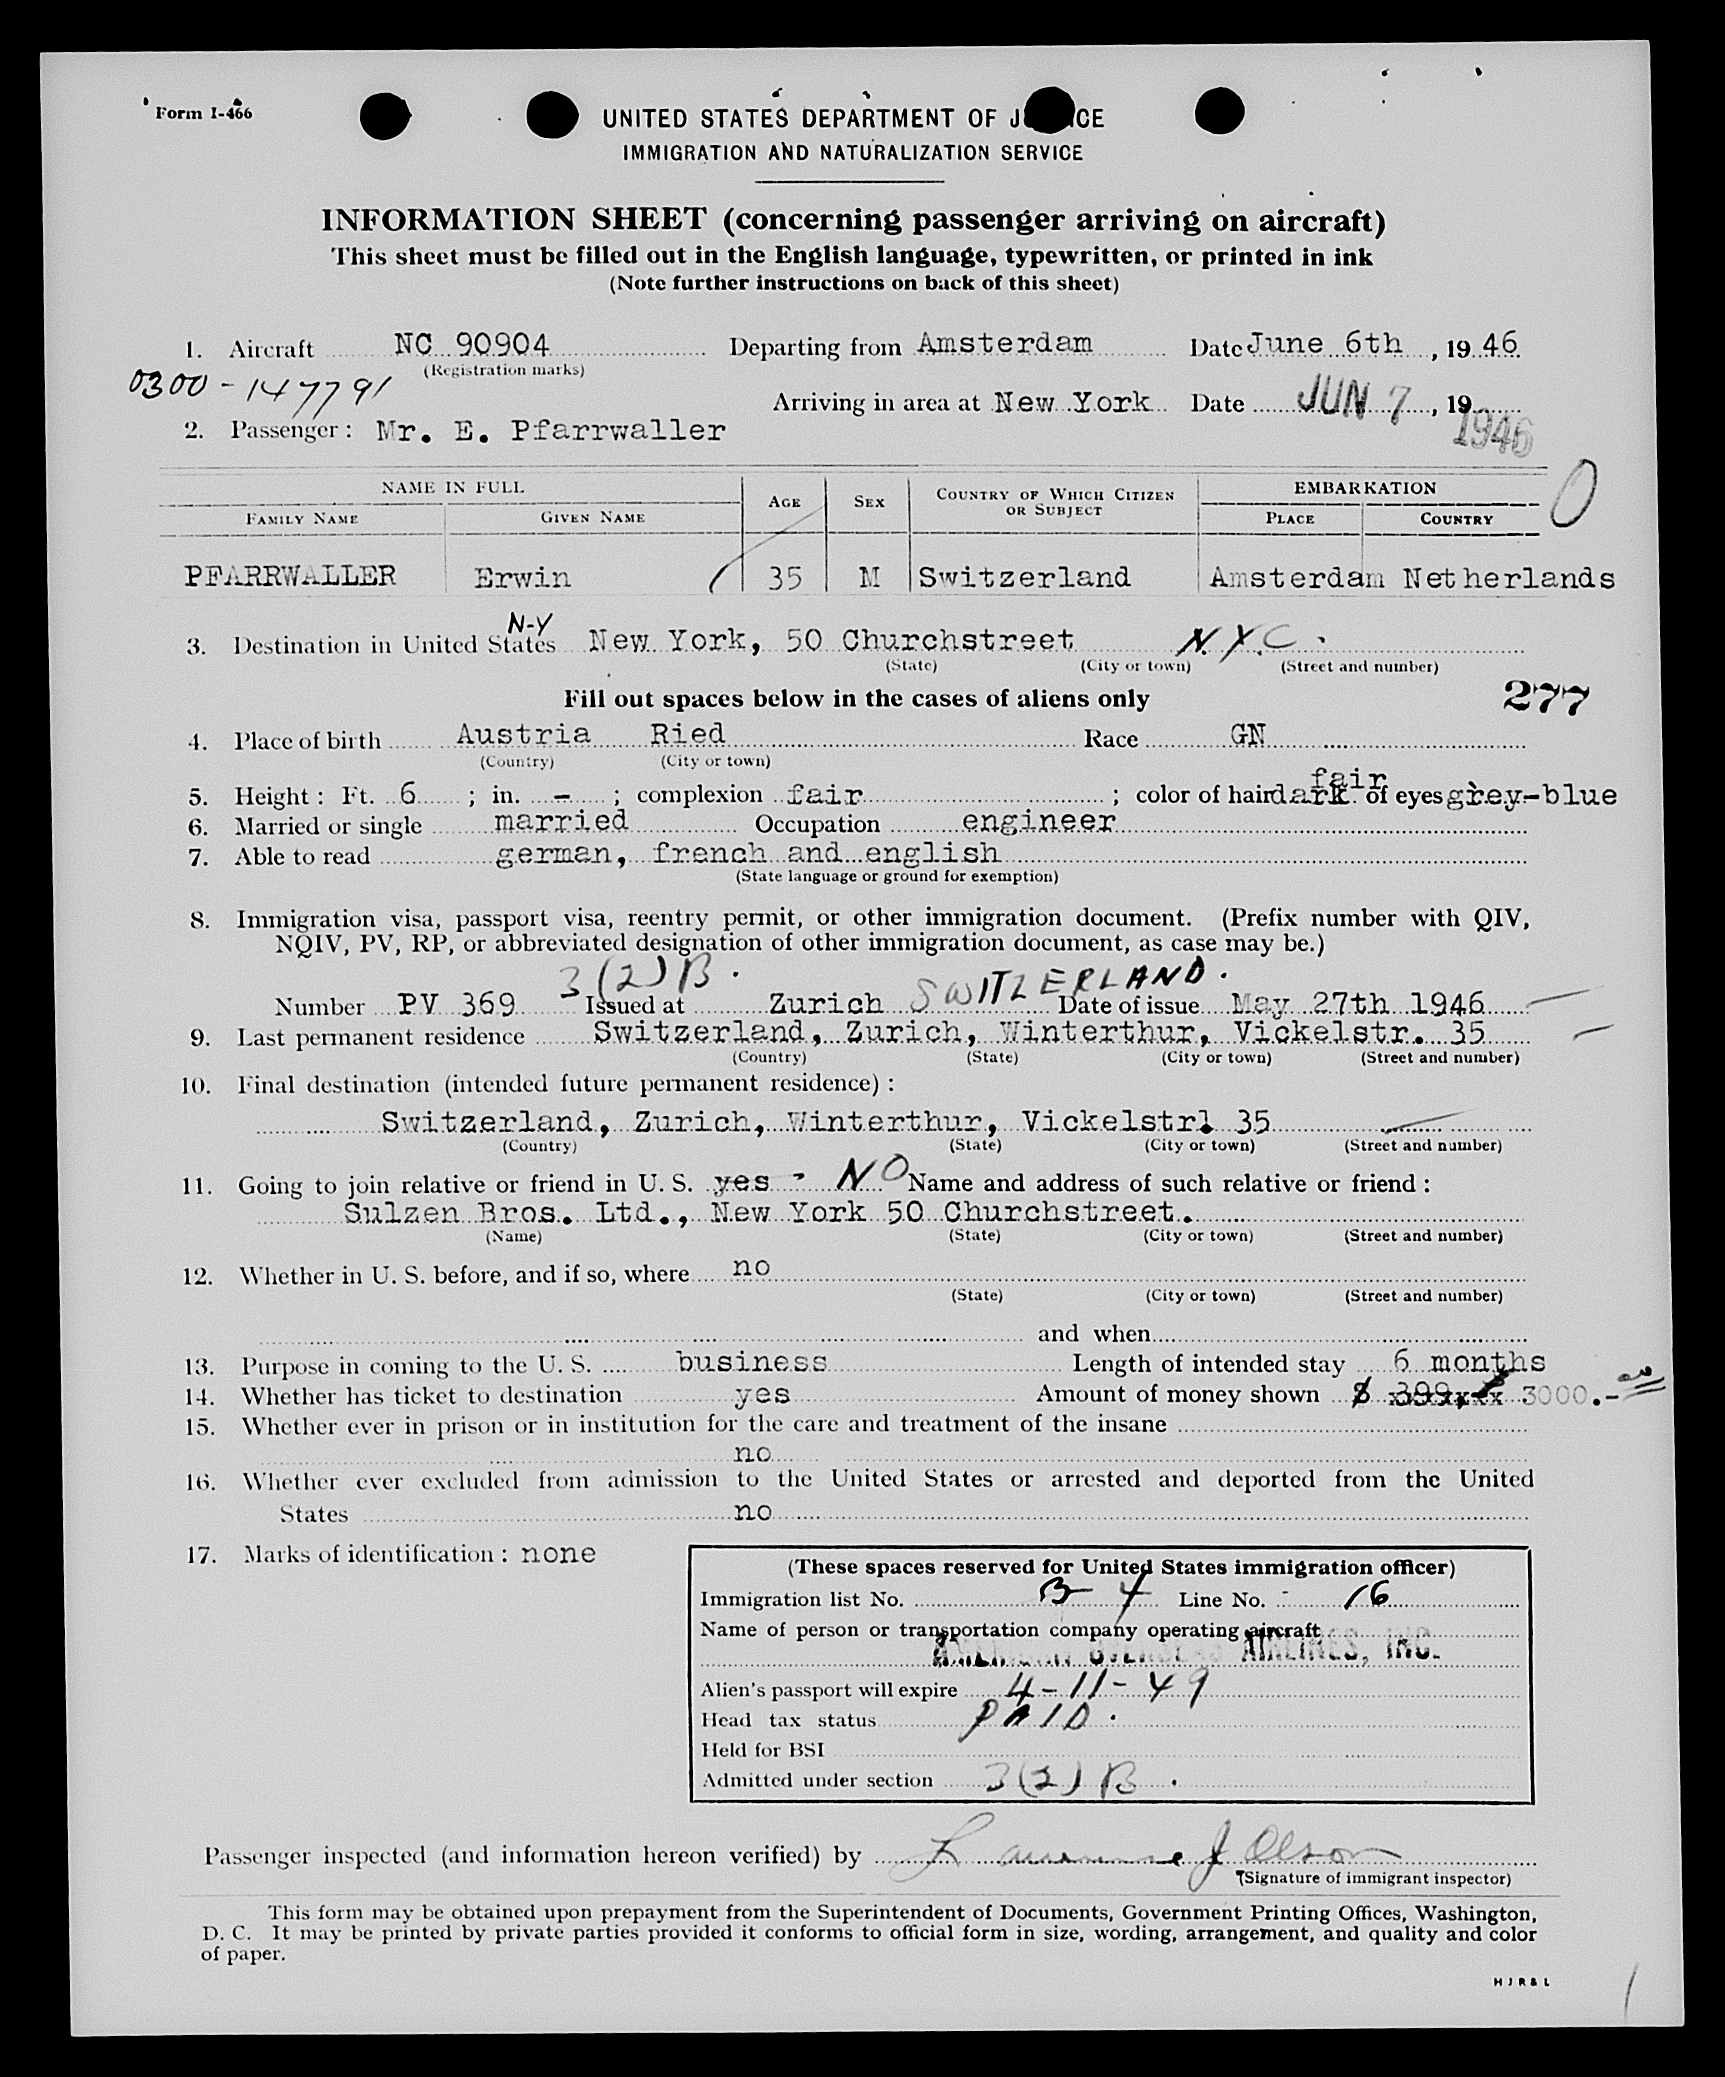 Form I-466
UNITED STATES DEPARTMENT OF J CE
IMMIGRATION AND NATURALIZATION SERVICE
INFORMATION SHEET (concerning passenger arriving on aircraft)
This sheet must be filled out in the English language, typewritten, or printed in ink
(Note further instructions on back of this sheet)
1. Aircraft NC 90904 Departing from Amsterdam Date June 6th, 19 46
(Registration marks)
0300 - 147791
Arriving in area at New York Date JUN 7, 19
1946
2. Passenger: Mr. E. Pfarrwaller
NAME IN FULL AGE SEX COUNTRY OF WHICH CITIZEN OR SUBJECT EMBARKATION 0
FAMILY NAME GIVEN NAME PLACE COUNTRY
PFARRWALLER Erwin 35 M Switzerland Amsterdam Netherlands
N-Y
3. Destination in United States New York, 50 Churchstreet N.Y.C.
(State) (City or town) (Street and number)
Fill out spaces below in the cases of aliens only 277
4. Place of birth Austria Ried Race GN
(Country) (City or town)
fair
5. Height: Ft. 6; in. -; complexion fair; color of hair dark of eyes grey-blue
6. Married or single married Occupation engineer
7. Able to read german, french and english
(State language or ground for exemption)
8. Immigration visa, passport visa, reentry permit, or other immigration document. (Prefix number with QIV,
NQIV, PV, RP, or abbreviated designation of other immigration document, as case may be.)
3(2)B. SWITZERLAND.
Number PV 369 Issued at Zurich Date of issue May 27th 1946
9. Last permanent residence Switzerland, Zurich, Winterthur, Vickelstr. 35
(Country) (State) (City or town) (Street and number)
10. Final destination (intended future permanent residence):
Switzerland, Zurich, Winterthur, Vickelstrl 35
(Country) (State) (City or town) (Street and number)
11. Going to join relative or friend in U. S. yes - NO Name and address of such relative or friend:
Sulzen Bros. Ltd., New York 50 Churchstreet.
(Name) (State) (City or town) (Street and number)
12. Whether in U. S. before, and if so, where no
(State) (City or town) (Street and number)
and when
13. Purpose in coming to the U. S. business Length of intended stay 6 months
14. Whether has ticket to destination yes Amount of money shown $ 399, 3000.-
15. Whether ever in prison or in institution for the care and treatment of the insane
no
16. Whether ever excluded from admission to the United States or arrested and deported from the United
States no
17. Marks of identification: none
(These spaces reserved for United States immigration officer)
Immigration list No. B-4 Line No. 16
Name of person or transportation company operating aircraft
AMERICAN OVERSEAS AIRLINES, INC.
Alien's passport will expire 4-11-49
Head tax status PAID.
Held for BSI
Admitted under section 3(2)B.
Passenger inspected (and information hereon verified) by Lawrence J Olson
(Signature of immigrant inspector)
This form may be obtained upon prepayment from the Superintendent of Documents, Government Printing Offices, Washington,
D. C. It may be printed by private parties provided it conforms to official form in size, wording, arrangement, and quality and color
of paper.
H J R & L